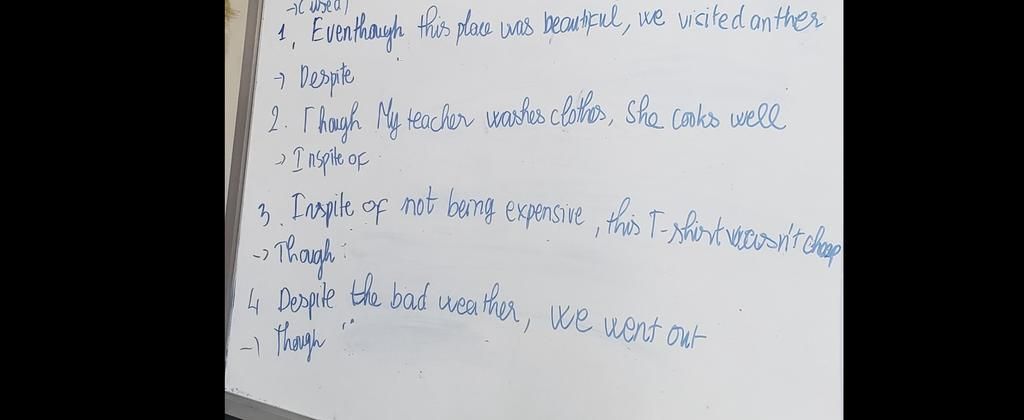 →( used)
1. Eventhough this place was beautiful, we visited anther
→ Despite
2. Though My teacher washes clothes, She cooks well
→ Inspite of
3. Inspite of not being expensive, this T-shirt wasn't cheap
→ Though :
4 Despite the bad weather, we went out
→ Though